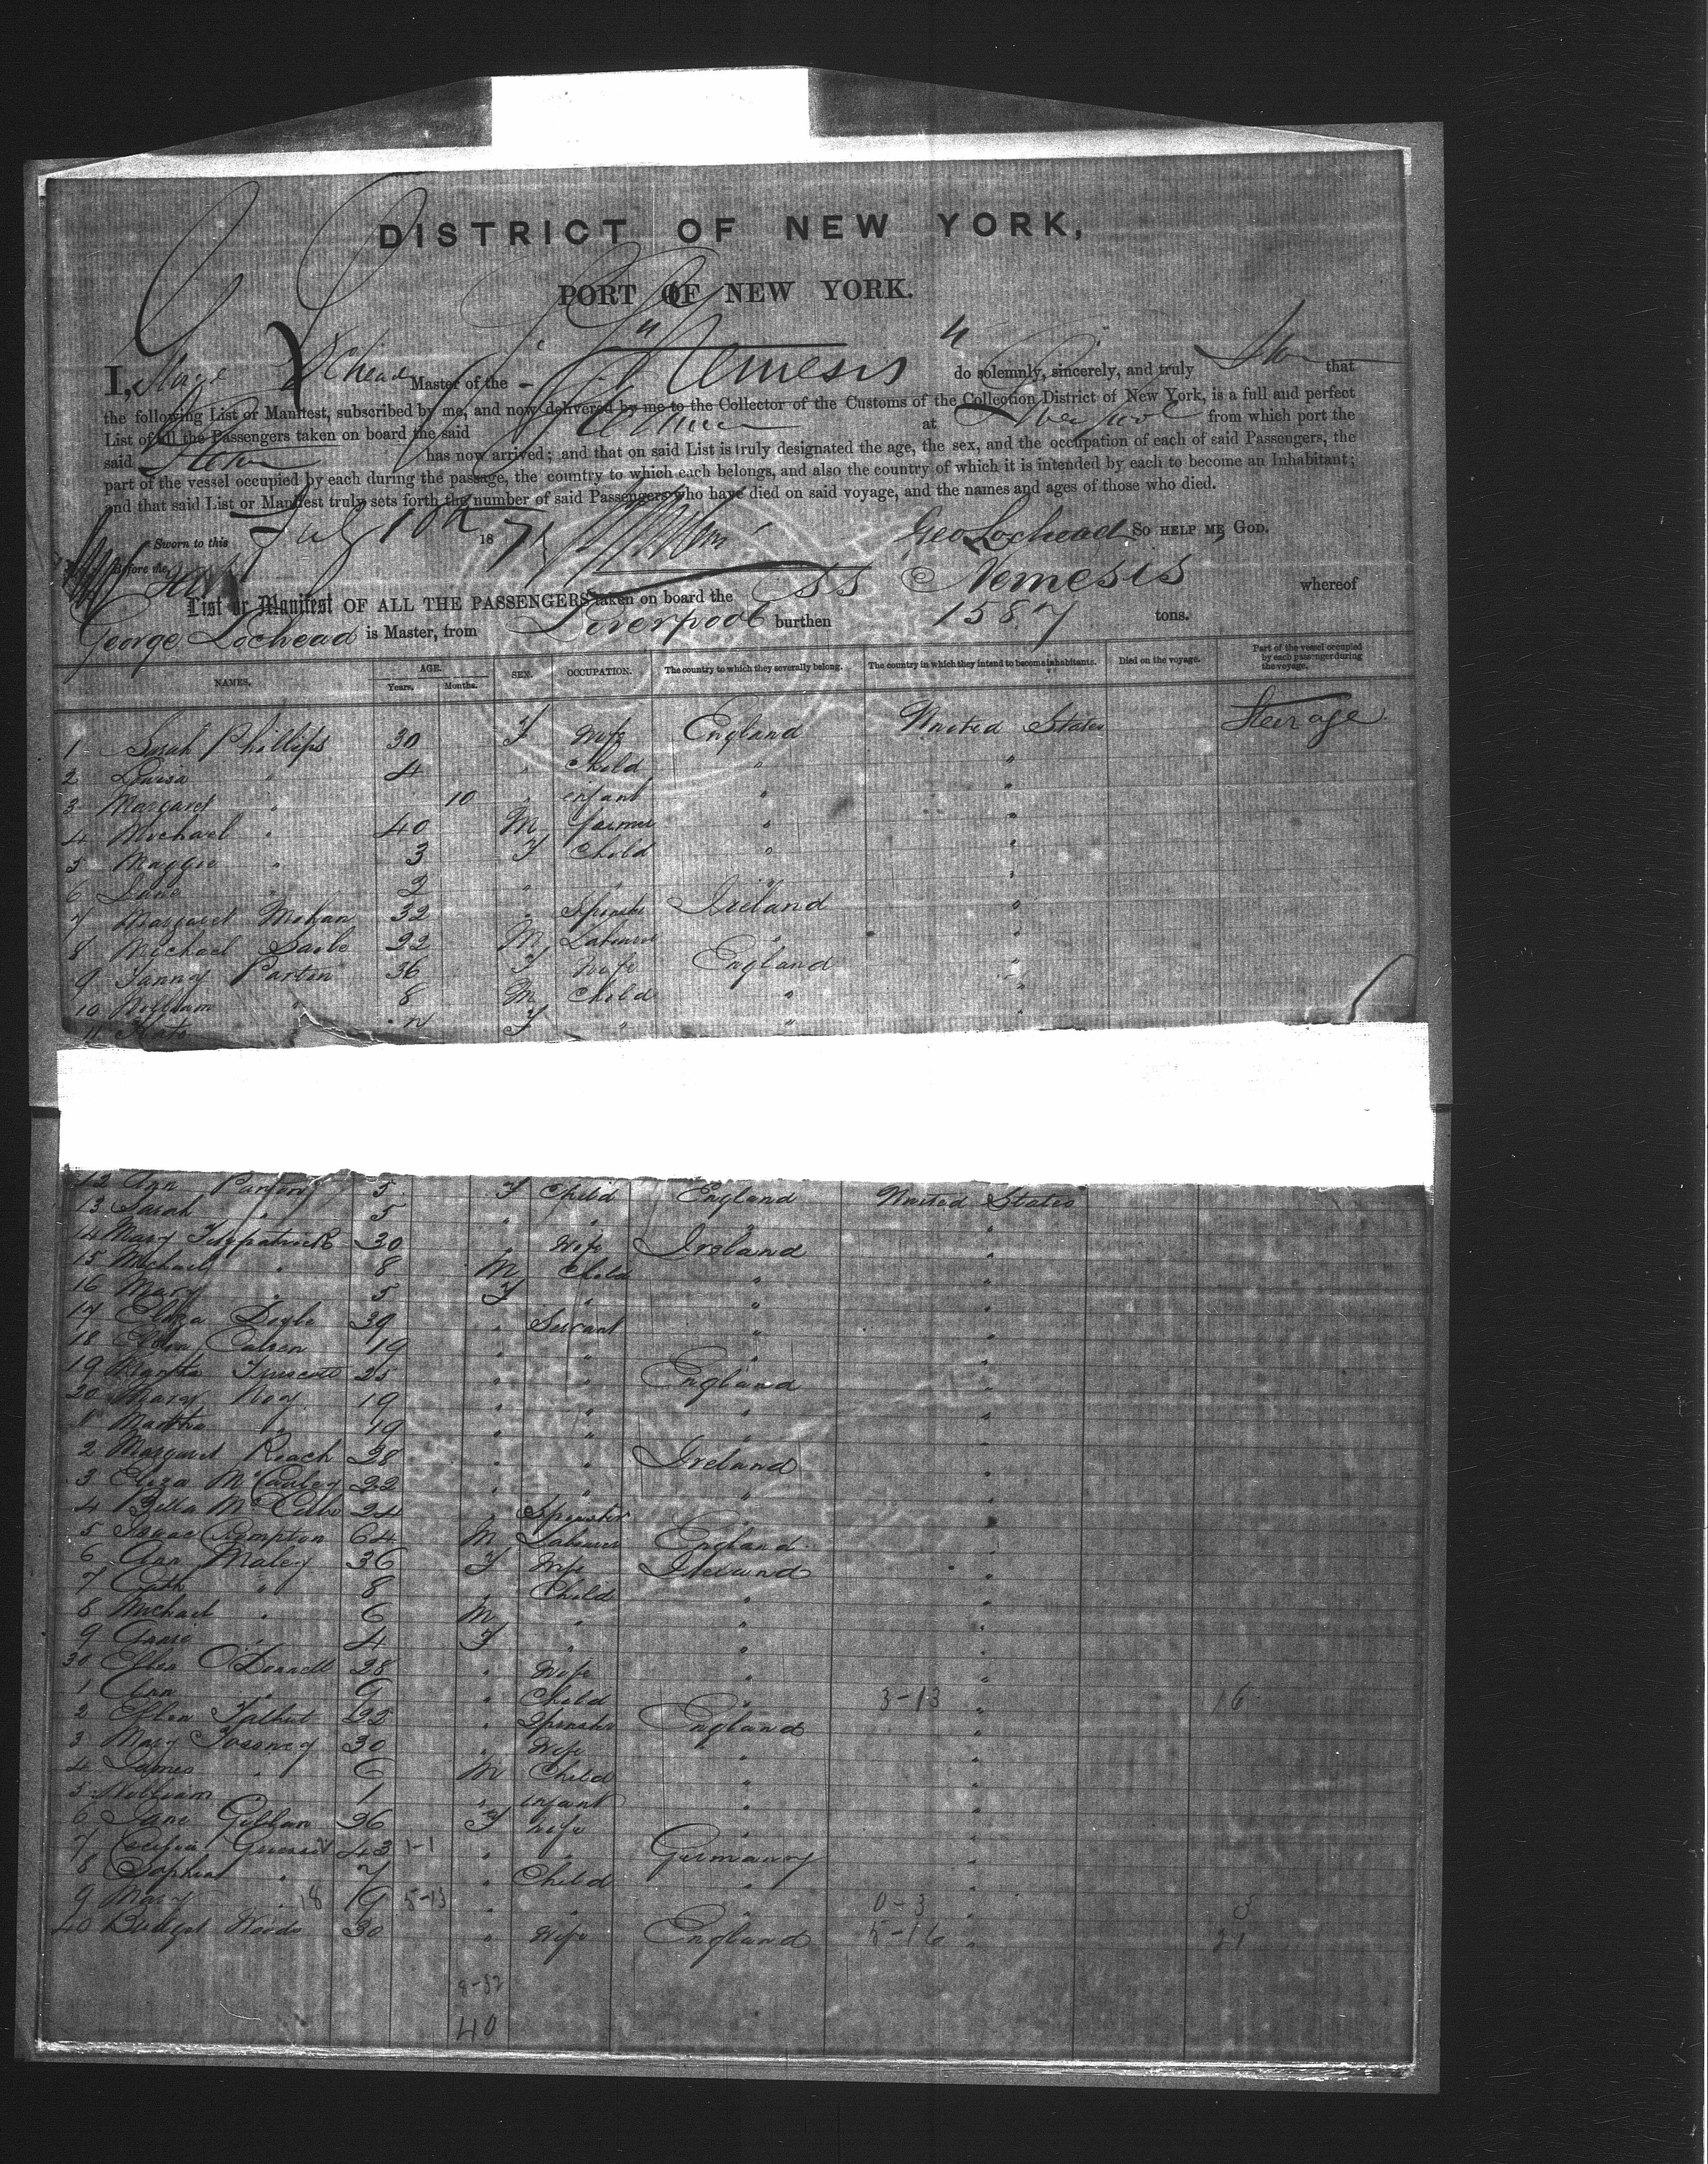 DISTRICT OF NEW YORK,
PORT OF NEW YORK.
I, George Lochead Master of the SS Nemesis do solemnly, sincerely, and truly that
the following List or Manifest, subscribed by me, and now delivered by me to the Collector of the Customs of the Collection District of New York, is a full and perfect
List of all the Passengers taken on board the said at Liverpool from which port the
said has now arrived; and that on said List is truly designated the age, the sex, and the occupation of each of said Passengers, the
part of the vessel occupied by each during the passage, the country to which each belongs, and also the country of which it is intended by each to become an Inhabitant;
and that said List or Manifest truly sets forth the number of said Passengers who have died on said voyage, and the names and ages of those who died.
Sworn to this July 10th 1871 Geo Lochead SO HELP ME GOD.
Before me,
List or Manifest OF ALL THE PASSENGERS taken on board the SS Nemesis whereof
George Lochead is Master, from Liverpool burthen 1587 tons.
NAMES. AGE. Years. Months. SEX. OCCUPATION. The country to which they severally belong. The country in which they intend to become inhabitants. Died on the voyage. Part of the vessel occupied by each passenger during the voyage.
1 Sarah Phillips 30 F Wife England United States Steerage
2 Louisa " 4 " Child " "
3 Margaret " 10 " infant " "
4 Michael " 40 M farmer " "
5 Maggie " 3 F Child " "
6 Jane " 2 " " " "
7 Margaret Mohan 32 " Spinster Ireland "
8 Michael 22 M Labourer " "
9 Fanny Parton 36 F Wife England "
10 William " 8 M Child " "
11 Kate F " " "
12 Ann Parton 5 F Child England United States
13 Sarah " 5 " " " "
14 Mary Fitzpatrick 30 " Wife Ireland "
15 Michael " 8 M Child " "
16 Mary " 5 F " " "
17 Eliza Doyle 39 " Servant " "
18 Ellen 19 " " " "
19 Martha 25 " " England "
20 Mary Roy 19 " " " "
1 Martha " 19 " " " "
2 Margaret Roach 28 " " Ireland "
3 Eliza McCauley 22 " " " "
4 Bella McCabe 24 " Spinster " "
5 Isaac Crompton 64 M Labourer England "
6 Ann Maley 36 F Wife Ireland "
7 Cath " 8 " Child " "
8 Michael " 6 M " " "
9 Annie " 4 F " " "
30 Ellen O'Donnell 28 " Wife " "
1 Ann " 9 " Child " 3-13 " 16
2 Ellen Talbut 22 " Spinster England "
3 Mary 30 " Wife " "
4 James " 6 M Child " "
5 William 1 " infant " "
6 Jane Gillan 36 F Wife " "
7 Cecilia 43 1-1 " " Germany "
8 Sophia " 7 " Child " "
9 Mary " 18 19 5-13 " " " 0-3 " 3
40 Bridget Woods 30 " Wife England 5-16 " 21
40